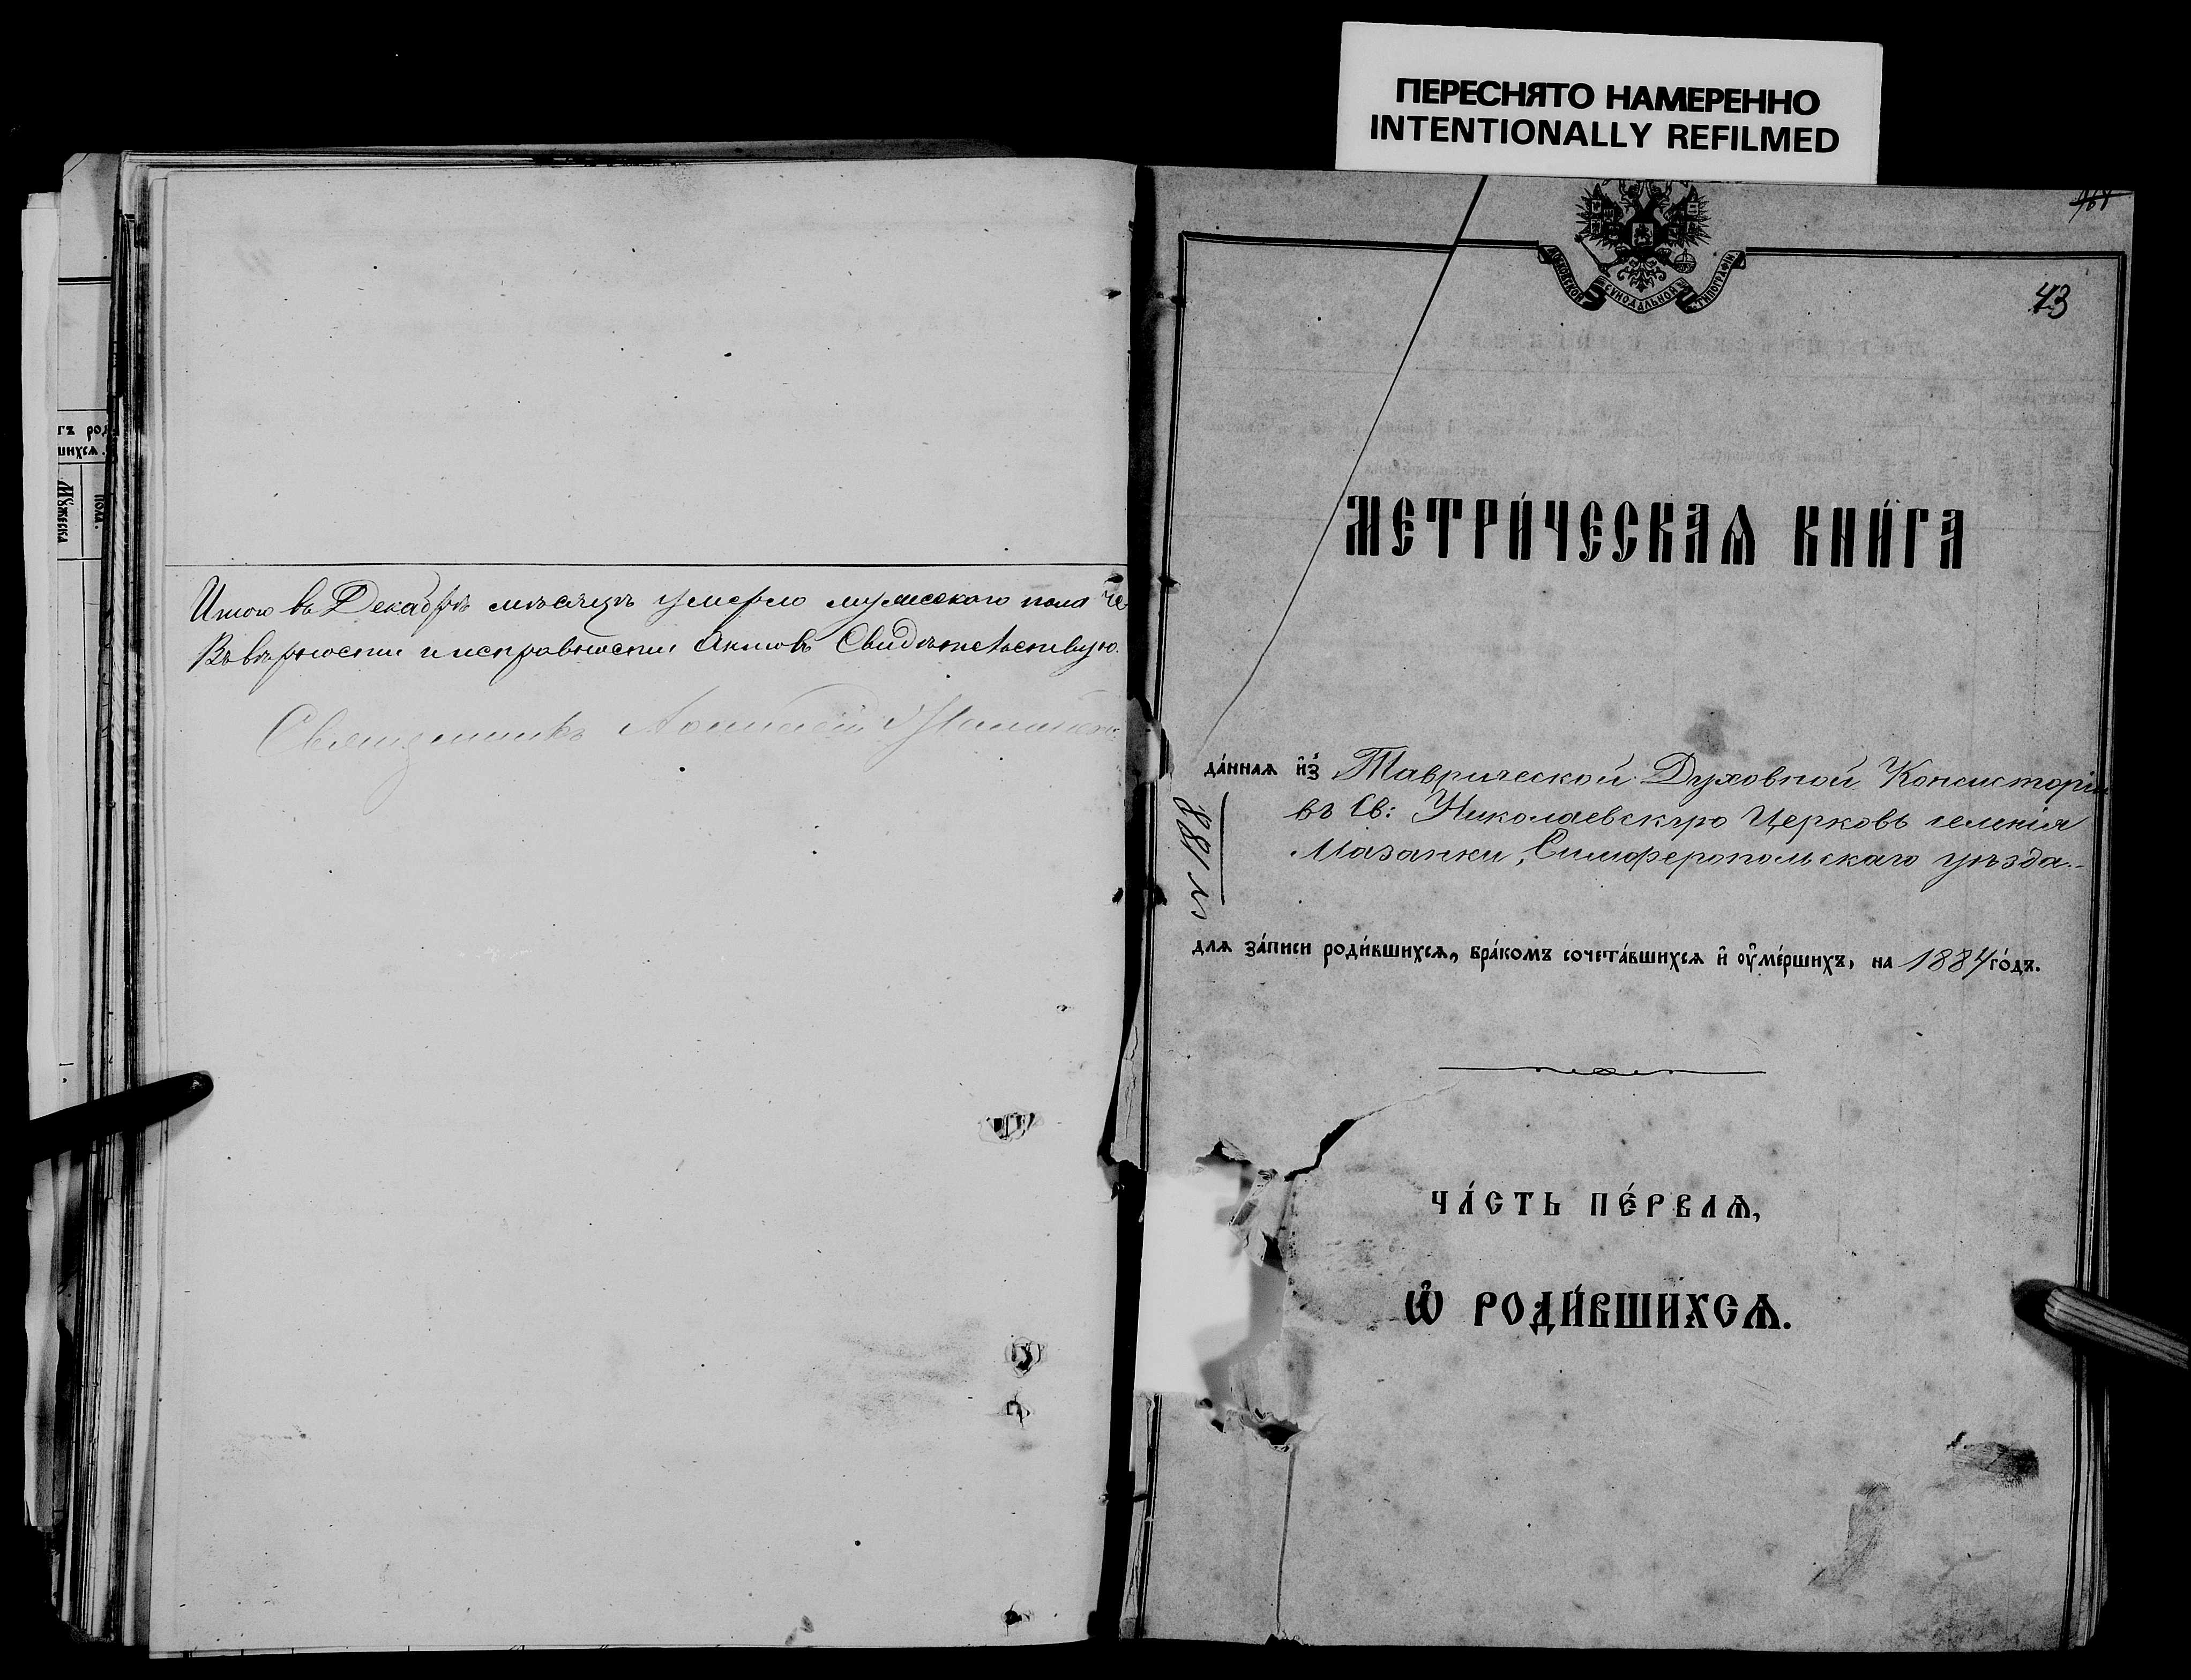 ПЕРЕСНЯТО НАМЕРЕННО
INTENTIONALLY REFILMED
Итого въ Декабрѣ мѣсяцѣ умерло мужескаго пола
Въ вѣрности и исправности Актовъ Свидѣтельствую.
Священникъ
гъ род
шихсѧ
Мꙋжеска
пола.
МОСКОВСКОЙ СѴНОДАЛЬНОЙ ТИПОГРАФІИ
43
МЕТРИ́ЧЕСКАѦ КНИ́ГА
да́ннаѧ и҆з̾ Таврической Духовной Консисторіи
въ Св: Николаевскую Церковь селенія
Мазанки, Симферопольскаго уѣзда.
длѧ за́писи роди́вшихсѧ, бра́комъ сочета́вшихсѧ и҆ ᲂу҆ме́ршихъ, на 1884 го́дъ.
ЧА́СТЬ ПЕ́РВАѦ,
Ѡ҆ РОДИ́ВШИХСѦ.